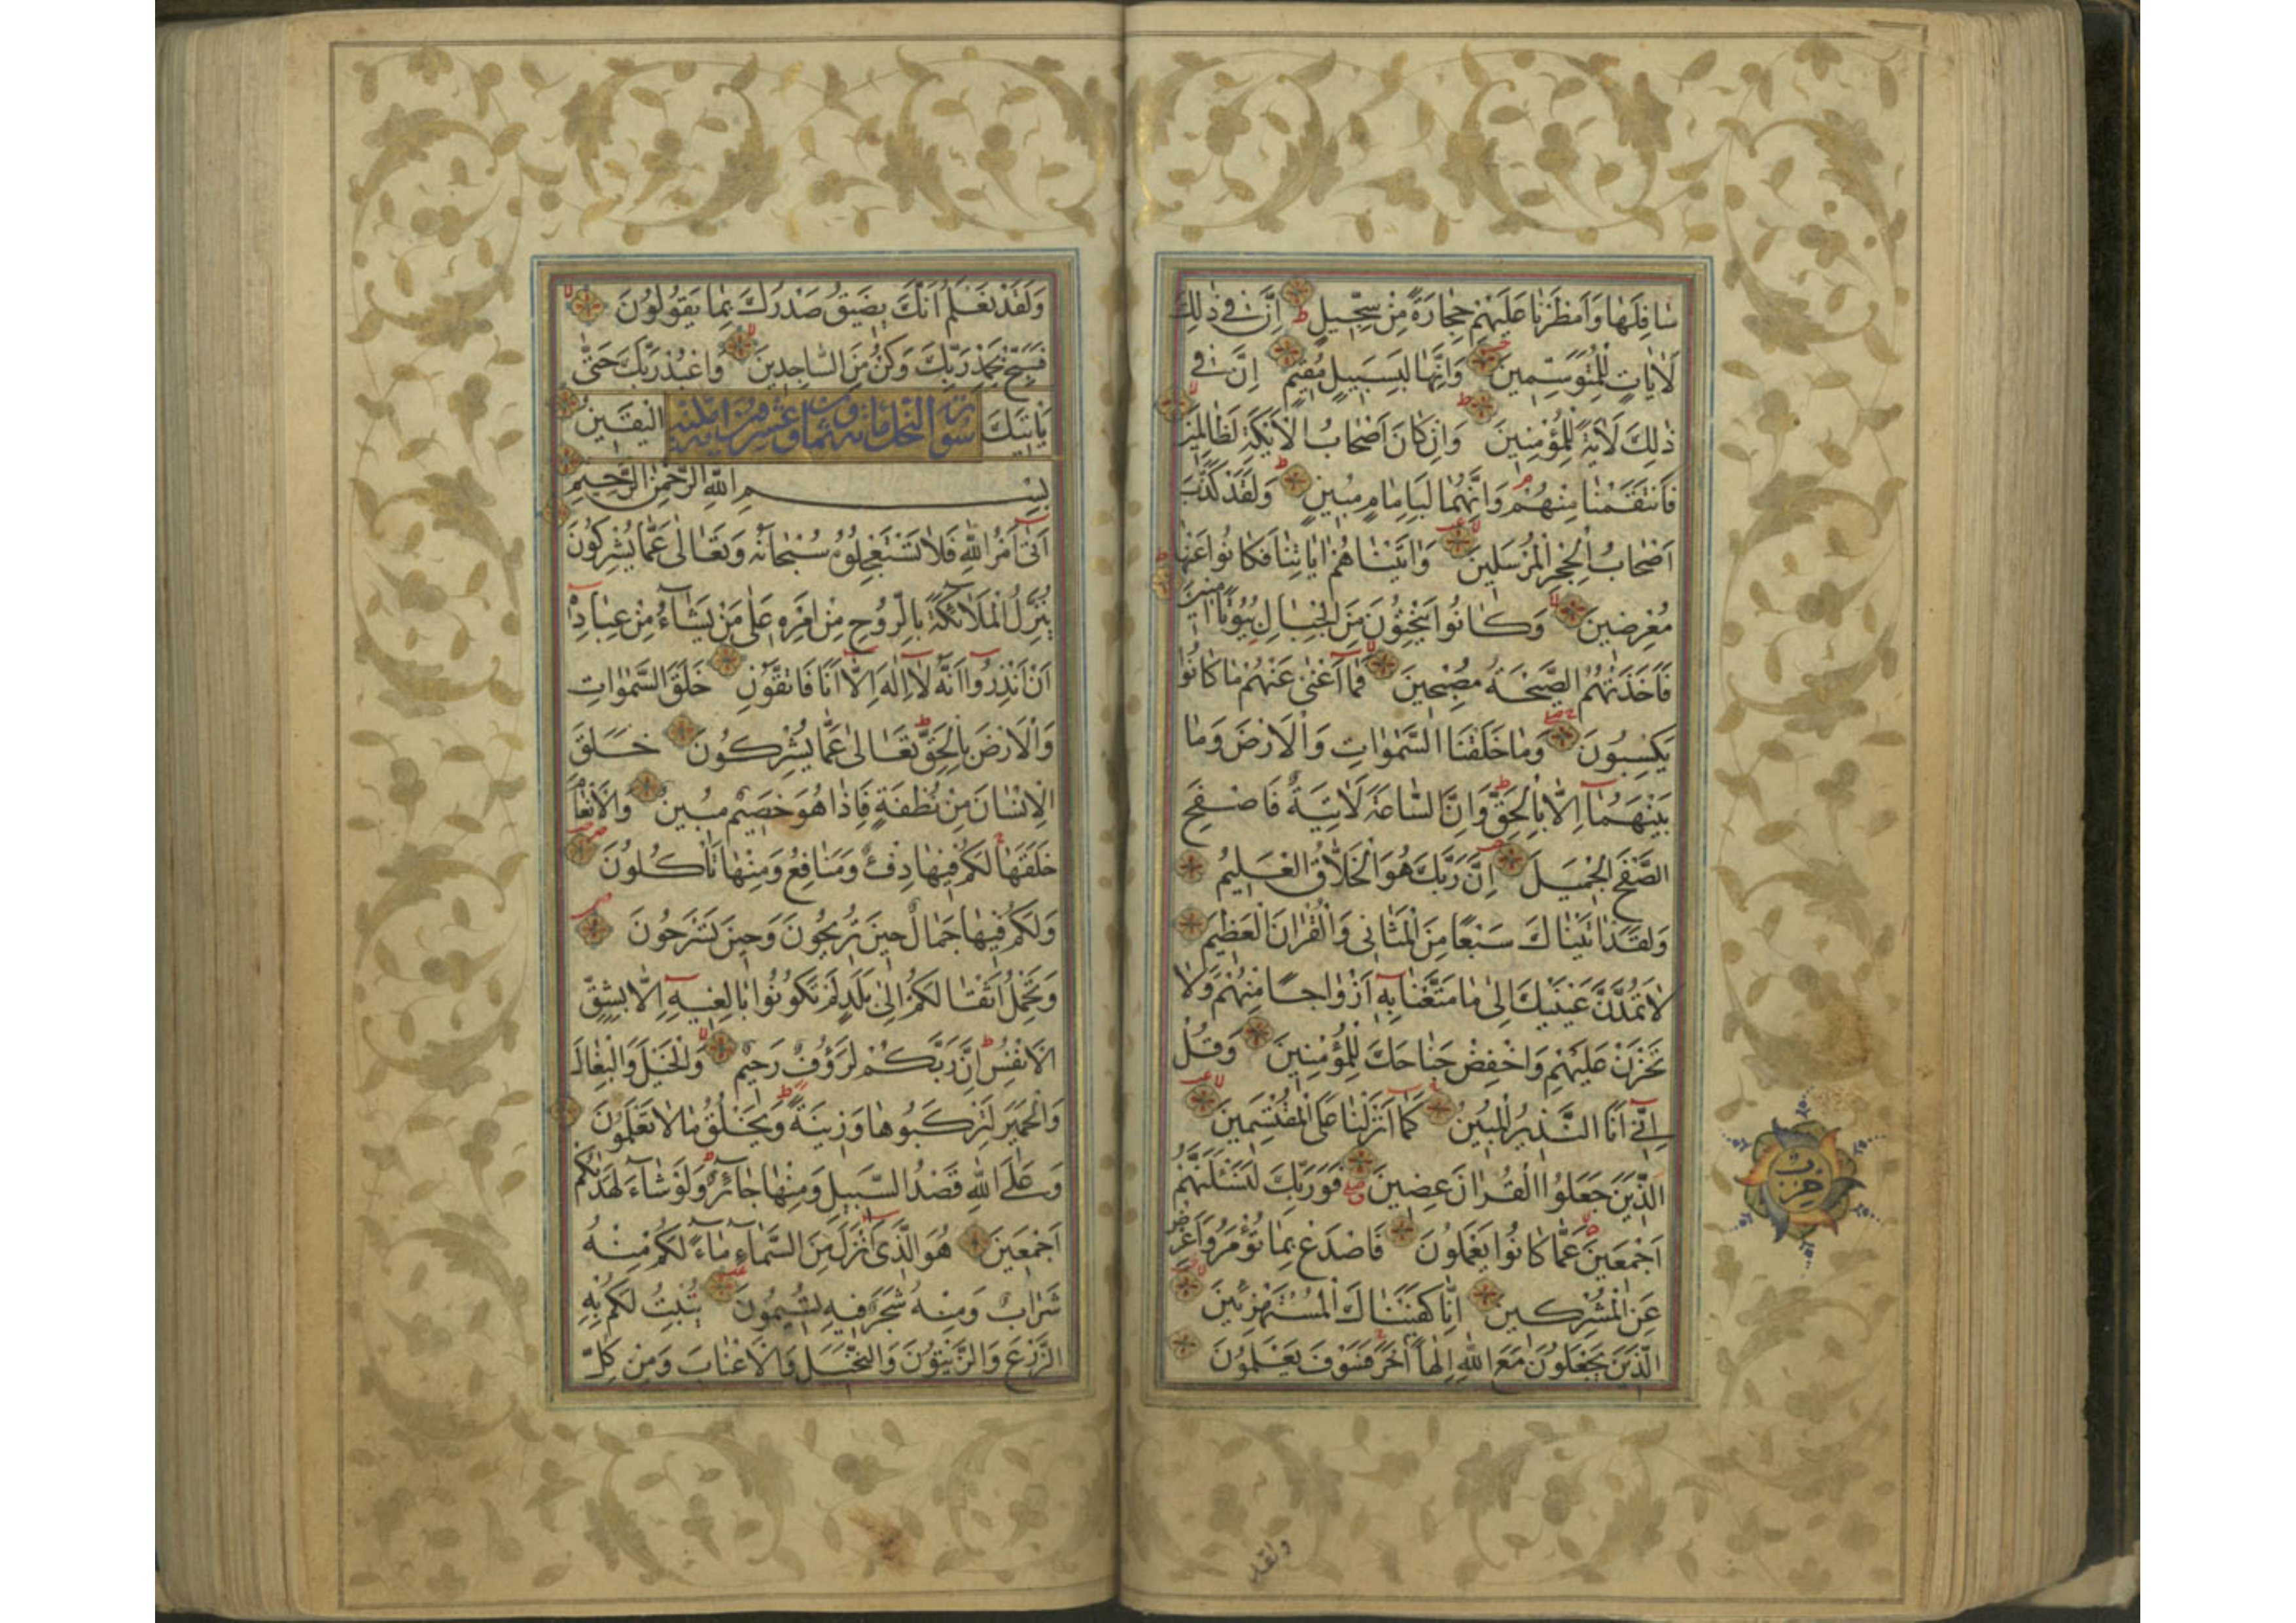 سافلها وامطرنا عليهم حجارة من سجيل ط ان في ذلك
لايات للمتوسمين وانها لبسبيل مقيم ان في
ذلك لاية للمؤمنين وان كان اصحاب الايكة لظالمين
فانتقمنا منهم وانهما لبامام مبين ولقد كذب
اصحاب الحجر المرسلين واتيناهم اياتنا فكانوا عنها
معرضين وكانوا ينحتون من الجبال بيوتا امنين
فاخذتهم الصيحة مصبحين فما اغنى عنهم ما كانوا
يكسبون وما خلقنا السموات والارض وما
بينهما الا بالحق وان الساعة لاتية فاصفح
الصفح الجميل ان ربك هو الخلاق العليم
ولقد اتيناك سبعا من المثاني والقران العظيم
لا تمدن عينيك الى ما متعنا به ازواجا منهم ولا
تحزن عليهم واخفض جناحك للمؤمنين وقل
اني انا النذير المبين كما انزلنا على المقتسمين
الذين جعلوا القران عضين فوربك لنسئلنهم
اجمعين عما كانوا يعملون فاصدع بما تؤمر واعرض
عن المشركين انا كفيناك المستهزئين
الذين يجعلون مع الله الها اخر فسوف يعلمون
حزب
ولقد
ولقد نعلم انك يضيق صدرك بما يقولون
فسبح بحمد ربك وكن من الساجدين واعبد ربك حتى
ياتيك اليقين
سورة النحل مائة وثمان وعشرون اية
بسم الله الرحمن الرحيم
اتى امر الله فلا تستعجلوه سبحانه وتعالى عما يشركون
ينزل الملائكة بالروح من امره على من يشاء من عباده
ان انذروا انه لا اله الا انا فاتقون خلق السموات
والارض بالحق تعالى عما يشركون خلق
الانسان من نطفة فاذا هو خصيم مبين والانعام
خلقها لكم فيها دفء ومنافع ومنها تاكلون
ولكم فيها جمال حين تريحون وحين تسرحون
وتحمل اثقالكم الى بلد لم تكونوا بالغيه الا بشق
الانفس ان ربكم لرؤف رحيم والخيل والبغال
والحمير لتركبوها وزينة ويخلق ما لا تعلمون
وعلى الله قصد السبيل ومنها جائر ولو شاء لهديكم
اجمعين هو الذي انزل من السماء ماء لكم منه
شراب ومنه شجر فيه تسيمون ينبت لكم به
الزرع والزيتون والنخيل والاعناب ومن كل